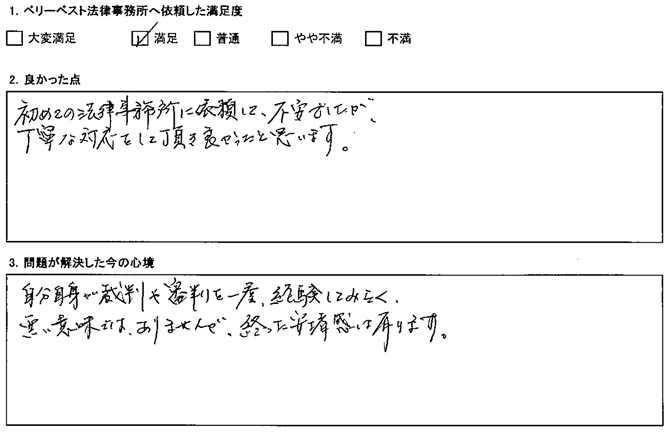 1. ベリーベスト法律事務所へ依頼した満足度
大変満足 満足 普通 やや不満 不満
2. 良かった点
初めての法律事務所に依頼して、不安でしたが、
丁寧な対応をして頂き良かったと思います。
3. 問題が解決した今の心境
自分自身が裁判や審判を一度、経験してみたく、
悪い意味では、ありませんが、終った安堵感は有ります。